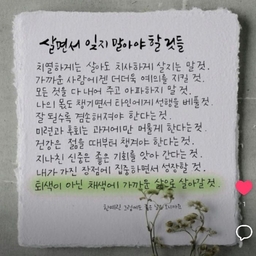 살면서 잊지 말아야 할 것들
치열하게는 살아도 치사하게 살지는 말 것.
가까운 사람에겐 더더욱 예의를 지킬 것.
모든 것을 다 내어 주고 아파하지 말 것.
나의 몫도 챙기면서 타인에게 선행을 베풀 것.
잘 될수록 겸손해져야 한다는 것.
미련과 후회는 과거에만 머물게 한다는 것.
건강은 젊을 때부터 챙겨야 한다는 것.
지나친 신중은 좋은 기회를 앗아 간다는 것.
내가 가진 장점에 집중하면서 성장할 것.
퇴색이 아닌 채색에 가까운 삶으로 살아갈 것.